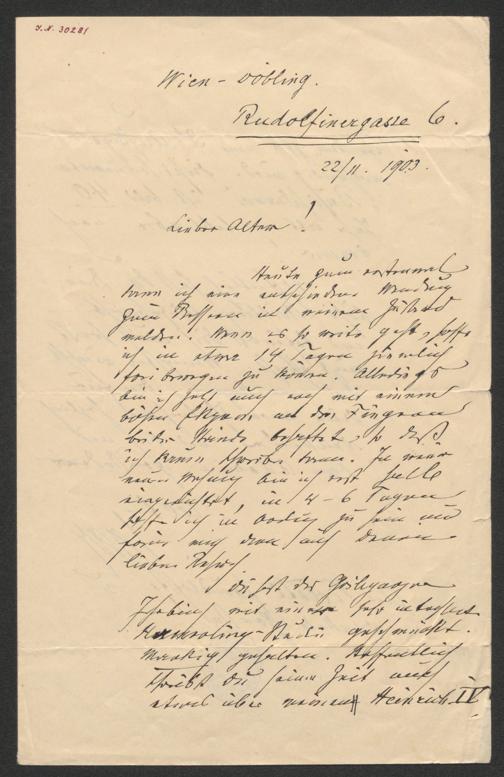 J.N. 30281
Wien - Döbling.
Rudolfinergasse 6.
22/11. 1903.
Lieber Alter!
Heute zum erstenmal
kann ich eine entschiedene Wendung
zum Besseren in meinem Zustand
melden. Wenn es so weiter geht, hoffe
ich in etwa 14 Tagen ziemlich
zu können. Allerdings
bin ich jetzt auch noch mit einem
bösen Ekzem an den Fingern
beider Hände behaftet, so daß
ich kaum schreiben kann. In meiner
neuen Wohnung bin ich erst halb
eingerichtet, in 4-6 Tagen
hoffe ich in Ordnung zu sein und
freue mich dann auf Deinen
lieben Besuch.
Du hast die
mit einer sehr
Studie geschmückt.
Markig gehalten. Hoffentlich
schreibst Du seiner Zeit auch
etwas über meinen Heinrich IV